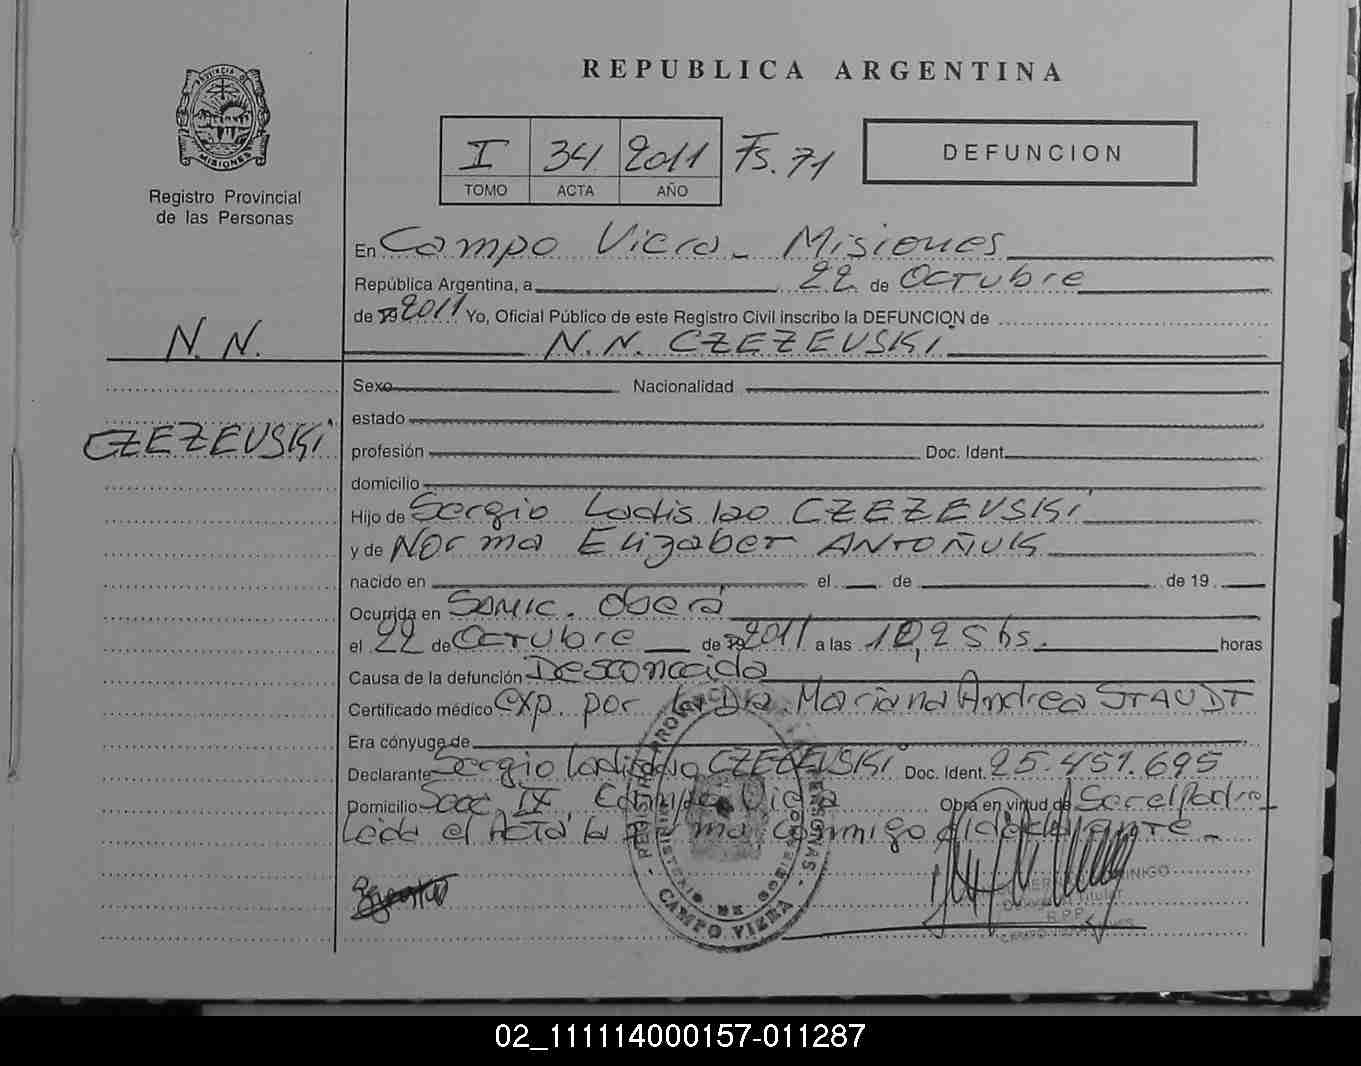 PROVINCIA DE
MISIONES
Registro Provincial
de las Personas
REPUBLICA ARGENTINA
I 34 2011 Fs. 71
TOMO ACTA AÑO
DEFUNCION
En Campo Viera - Misiones
República Argentina, a 22 de Octubre
de 19 2011 Yo, Oficial Público de este Registro Civil inscribo la DEFUNCION de
N. N.
N. N. CZEZEVSKi
Sexo Nacionalidad
estado
CZEZEVSKi
profesión Doc. Ident.
domicilio
Hijo de Sergio Ladislao CZEZEVSKi
y de Norma Elizaber ANTOÑUK
nacido en el de de 19
Ocurrida en SAMIC. Oberá
el 22 de Octubre de 19 2011 a las 10,25 hs. horas
Causa de la defunción Desconocida
Certificado médico exp. por la Dra. Mariana Andrea STAUDT
Era cónyuge de
Declarante Sergio Ladislao CZEZEVSKi Doc. Ident. 25.451.695
Domicilio Secc. IX Campo Viera Obra en virtud de Ser el Padre
Leida el Acta, la firma conmigo el declarante -
CAMPO VIERA
R.P.P.
02_111114000157-011287